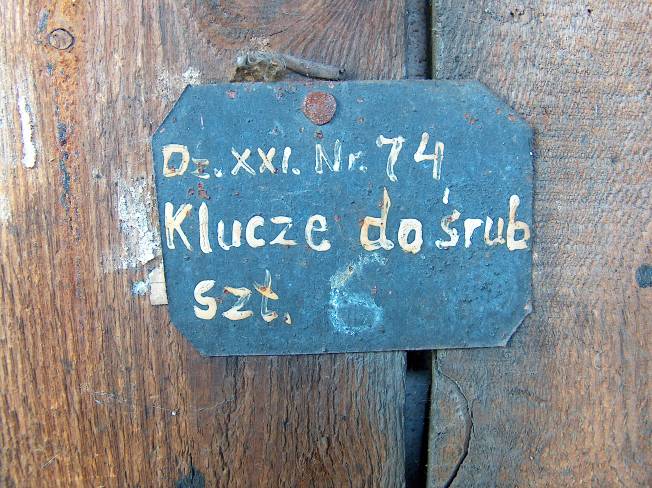 Dz. XXI. Nr. 74
Klucze do śrub
szt. 6